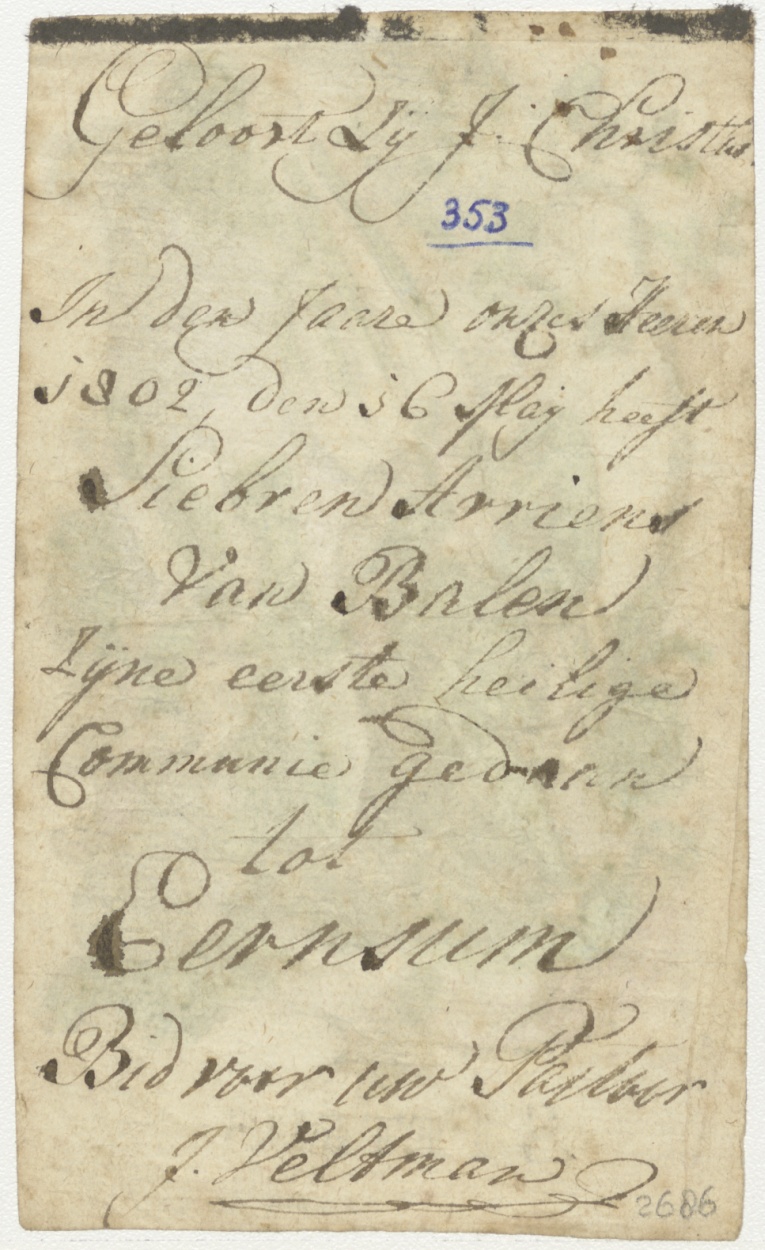 Geloort Zÿ J. Christus.
353
In den Jaare onzes Heeren
1802, den 16 Maÿ heeft
Siebren Arriens
Van Balen
Zÿne eerste heilige
Communie gedaan
tot
Eernsum
Bid voor uw Pastoor
J. Veltman
2686